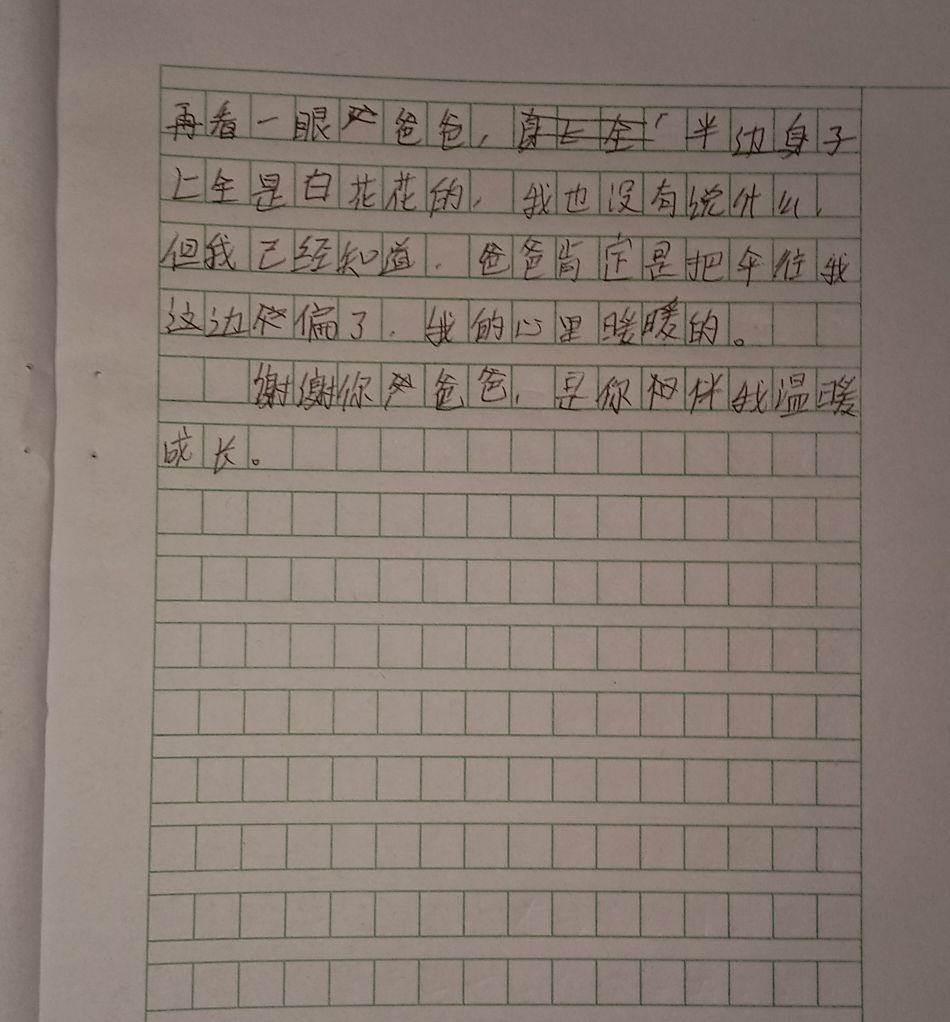 再看一眼爸爸，半边身子
上全是白花花的，我也没有说什么，
但我已经知道，爸爸肯定是把伞往我
这边偏了，我的心里暖暖的。
谢谢你爸爸，是你相伴我温暖
成长。